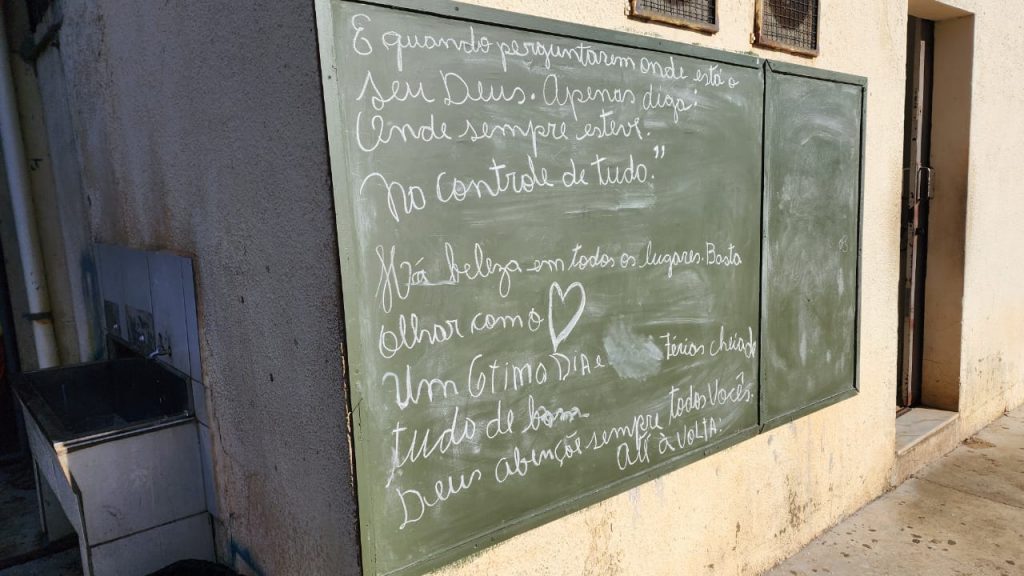 E quando perguntarem onde está o
seu Deus. Apenas diga:
Onde sempre esteve.
No controle de tudo."
Há beleza em todos os lugares. Basta
olhar com o
Um ótimo DIA e Férias cheia de
tudo de bom
Deus abençõe sempre todos Vocês.
Até à VOLTA!